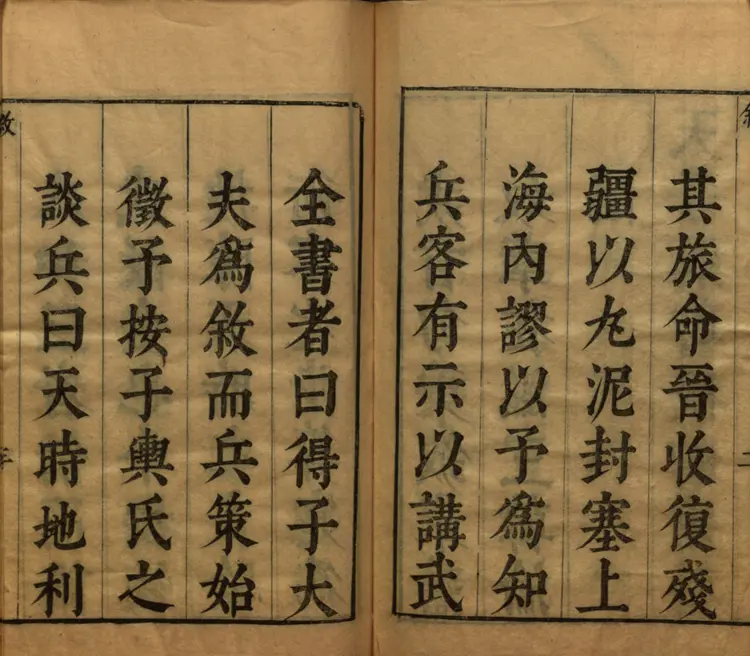 其旅命晉收復殘
疆以九泥封塞上
海內謬以予爲知
兵客有示以講武
全書者曰得子大
夫爲敘而兵策始
徵予按子輿氏之
談兵曰天時地利